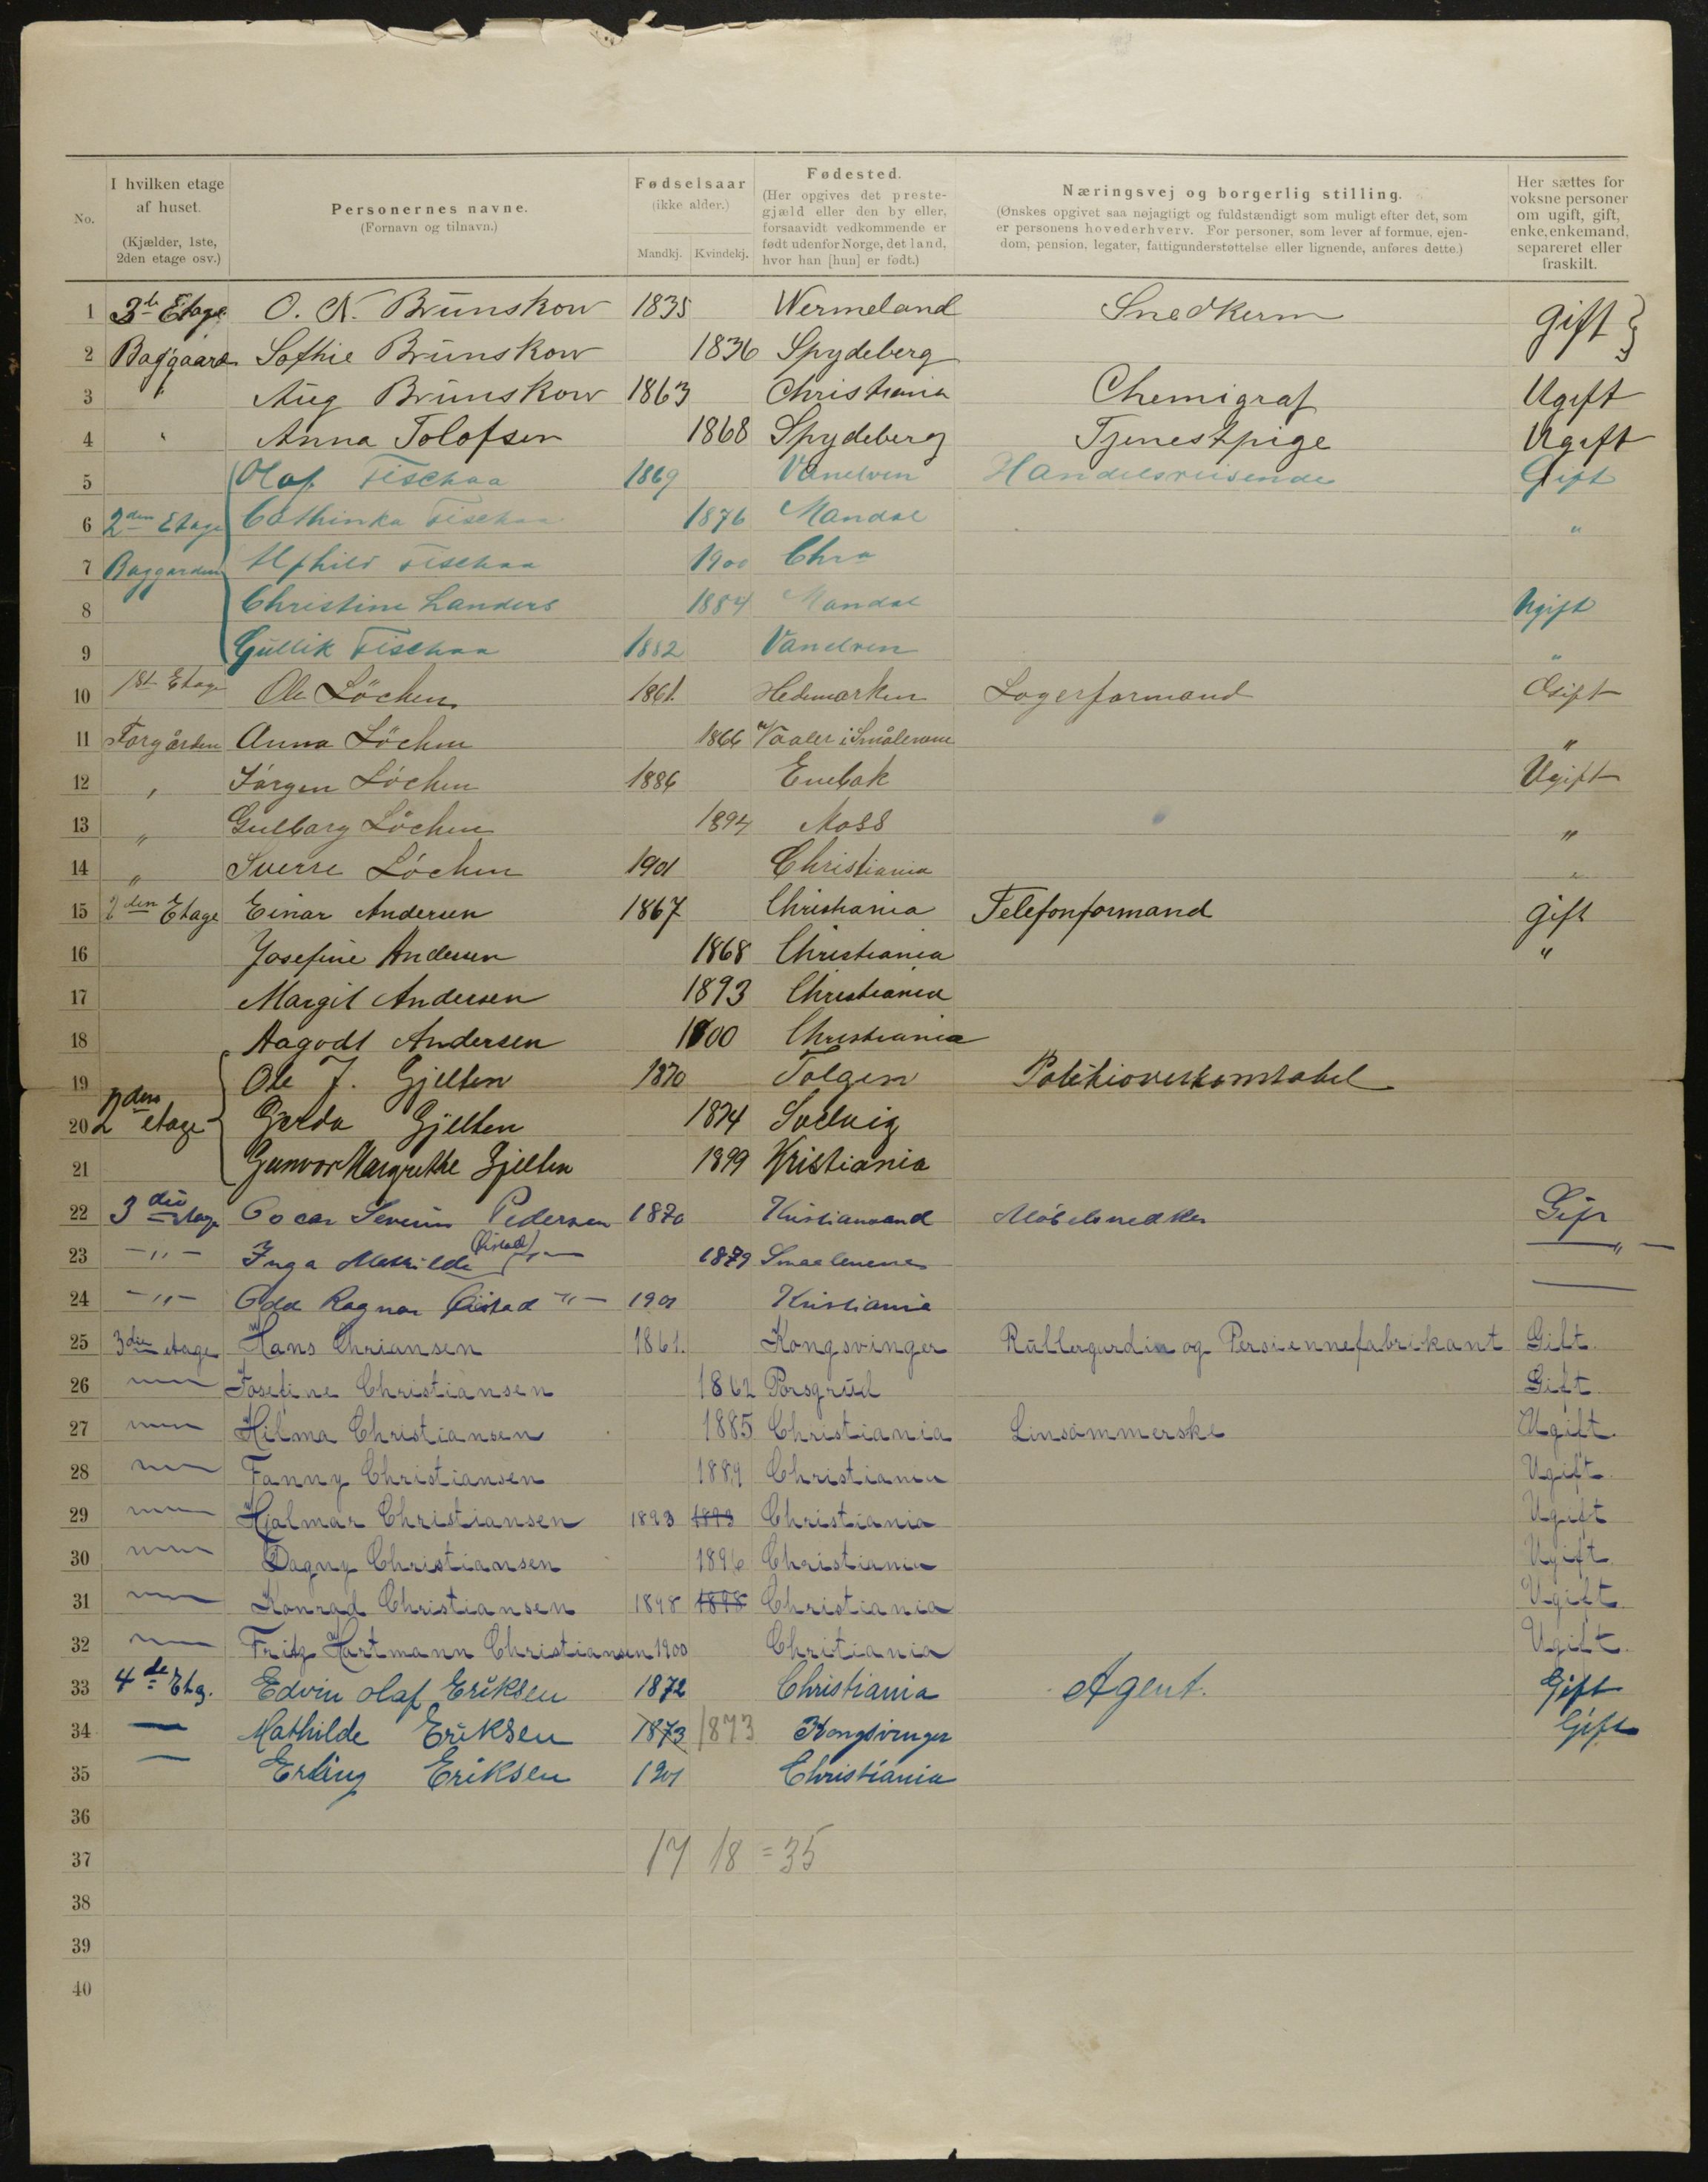 No.
I hvilken etage af huset. (Kjælder, 1ste, 2den etage osv.)
Personernes navne. (Fornavn og tilnavn.)
Fødselsaar (ikke alder.)
Mandkj. Kvindekj.
Fødested. (Her opgives det prestegjæld eller den by eller, forsaavidt vedkommende er født udenfor Norge, det land, hvor han [hun] er født.)
Næringsvej og borgerlig stilling. (Ønskes opgivet saa nøjagtigt og fuldstændigt som muligt efter det, som er personens hovederhverv. For personer, som lever af formue, ejendom, pension, legater, fattigunderstøttelse eller lignende, anføres dette.)
Her sættes for voksne personer om ugift, gift, enke, enkemand, separeret eller fraskilt.
1 3de Etage O. N. Brünskow 1835 Wermeland Snedkerm gift }
2 Baggaard Sofhie Brünskow 1836 Spydeberg
3 " Aug Brünskow 1863 Christiania Chemigraf Ugift
4 " Anna Tolofsen 1868 Spydeberg Tjenestpige Ugift
5 Olaf Fischaa 1869 Vanelven Handelsreisende Gift
6 2den Etage Cathinka Fischaa 1876 Mandal "
7 Baggarden Alfhild Fischaa 1900 Chra
8 Christine Landers 1884 Mandal Ugift
9 Gullik Fischaa 1882 Vanelven "
10 1st Etage Ole Löchen 1861. Hedemarken Lagerformand Gift
11 Forgården Anna Löchen 1866 Vaaler i Smålenene "
12 " Jörgen Löchen 1886 Enebak Ugift
13 " Gulborg Löchen 1894 Moss "
14 " Sverre Löchen 1901 Christiania "
15 2den Etage Einar Andersen 1867 Christiania Telefonformand gift
16 Josefine Andersen 1868 Christiania "
17 Margit Andersen 1893 Christiania
18 Aagodt Andersen 1900 Christiania
19 Ole J. Gjelten 1870 Tolgen Politioverkonstabel
20 2den etage Gerda Gjelten 1874 Svelvig
21 Gunvor Margrethe Gjelten 1899 Kristiania
22 3die etage Oscar Severin Pedersen 1870 Kristiansand Möbelsnedker Gift
23 -"- Inga Mathilde (Öistad) -"- 1879 Smaalenene -"-
24 -"- Odd Ragnar Öistad -"- 1901 Kristiania —
25 3die etage Hans Chriansen 1861. Kongsvinger Rüllergurdin og Persiennefabrikant Gift.
26 Josefine Christiansen 1862 Porsgrüd Gift.
27 Hilma Christiansen 1885 Christiania Linsömmerske Ugift.
28 Fanny Christiansen 1889 Christiania Ugift.
29 Hjalmar Christiansen 1893 1893 Christiania Ugift
30 Dagny Christiansen 1896 Christiania Ugift.
31 Konrad Christiansen 1898 1898 Christiania Ugift.
32 Fritz Hartmann Christiansen 1900 Chritiania Ugift.
33 4de Etg. Edvin Olaf Eriksen 1872 Christiania Agent. Gift
34 — Mathilde Eriksen 1873 1873 Kongsvinger Gift
35 — Erling Eriksen 1901 Christiania
36
37 17 18 = 35
38
39
40